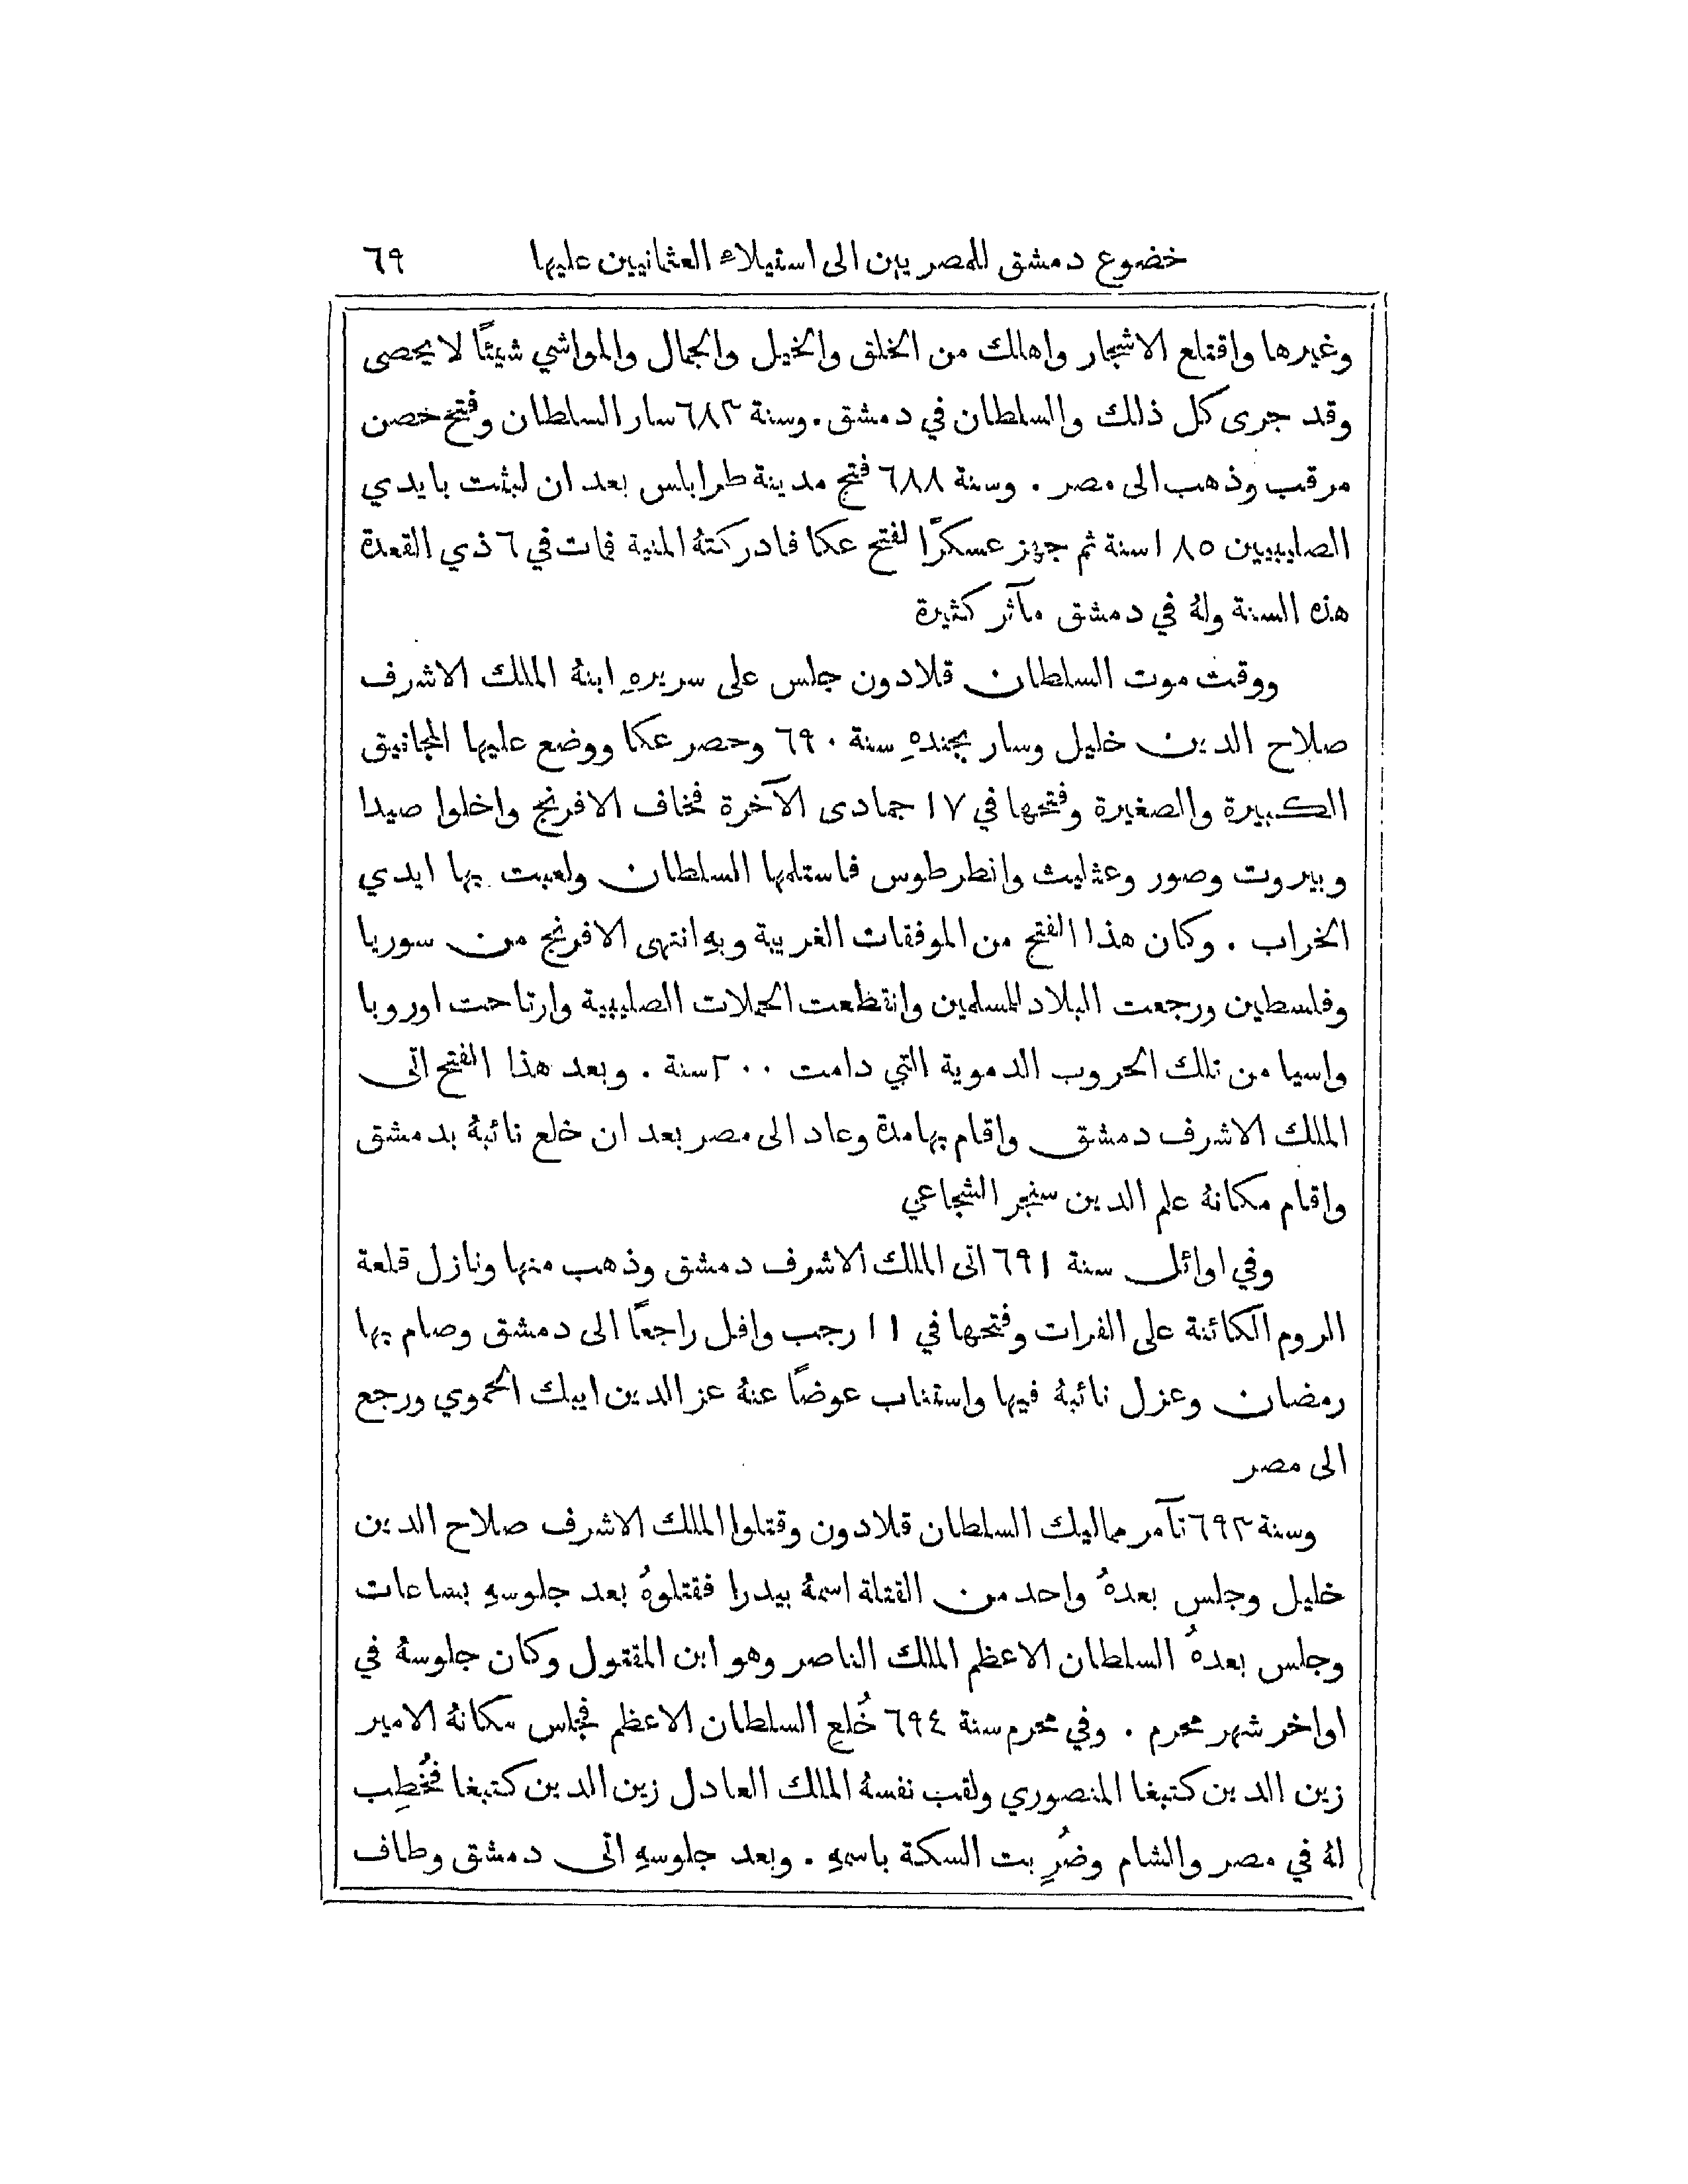 خضوع دمشق للمصريين الى استيلاء العثمانيين عليها ٦٩
وغيرها واقتلع الاشجار واهلك من الخلق والخيل والجمال والمواشي شيئًا لا يحصى
وقد جرى كل ذلك والسلطان في دمشق . وسنة ٦٨٣ سار السلطان وفتح حصن
مرقب وذهب الى مصر . وسنة ٦٨٨ فتح مدينة طرابلس بعد ان لبثت بايدي
الصليبيين ١٨٥ سنة ثم جهز عسكرًا لفتح عكا فادركتهُ المنية فمات في ٦ ذي القعدة
هذه السنة ولهُ في دمشق مآثر كثيرة
ووقت موت السلطان قلادون جلس على سريرهِ ابنهُ الملك الاشرف
صلاح الدين خليل وسار بجندهِ سنة ٦٩٠ وحصر عكا ووضع عليها المجانيق
الكبيرة والصغيرة وفتحها في ١٧ جمادى الآخرة فخاف الافرنج واخلوا صيدا
وبيروت وصور وعثليث وانطرطوس فاستلمها السلطان ولعبت بها ايدي
الخراب . وكان هذا الفتح من الموفقات الغريبة وبهِ انتهى الافرنج من سوريا
وفلسطين ورجعت البلاد للمسلمين وانقطعت الحملات الصليبية وارتاحت اوروبا
واسيا من تلك الحروب الدموية التي دامت ٢٠٠ سنة . وبعد هذا الفتح اتى
الملك الاشرف دمشق واقام بها مدة وعاد الى مصر بعد ان خلع نائبهُ بدمشق
واقام مكانهُ علم الدين سنجر الشجاعي
وفي اوائل سنة ٦٩١ اتى الملك الاشرف دمشق وذهب منها ونازل قلعة
الروم الكائنة على الفرات وفتحها في ١١ رجب وافل راجعًا الى دمشق وصام بها
رمضان وعزل نائبهُ فيها واستناب عوضًا عنهُ عز الدين ايبك الحموي ورجع
الى مصر
وسنة ٦٩٣ تآمر مماليك السلطان قلادون وقتلوا الملك الاشرف صلاح الدين
خليل وجلس بعدهُ واحد من القتلة اسمهُ بيدرا فقتلوهُ بعد جلوسهِ بساعات
وجلس بعدهُ السلطان الاعظم الملك الناصر وهو ابن المقتول وكان جلوسهُ في
اواخر شهر محرم . وفي محرم سنة ٦٩٤ خُلع السلطان الاعظم فجلس مكانهُ الامير
زين الدين كتبغا المنصوري ولقب نفسهُ الملك العادل زين الدين كتبغا فخُطِب
لهُ في مصر والشام وضُرِبت السكة باسمهِ . وبعد جلوسهِ اتى دمشق وطاف